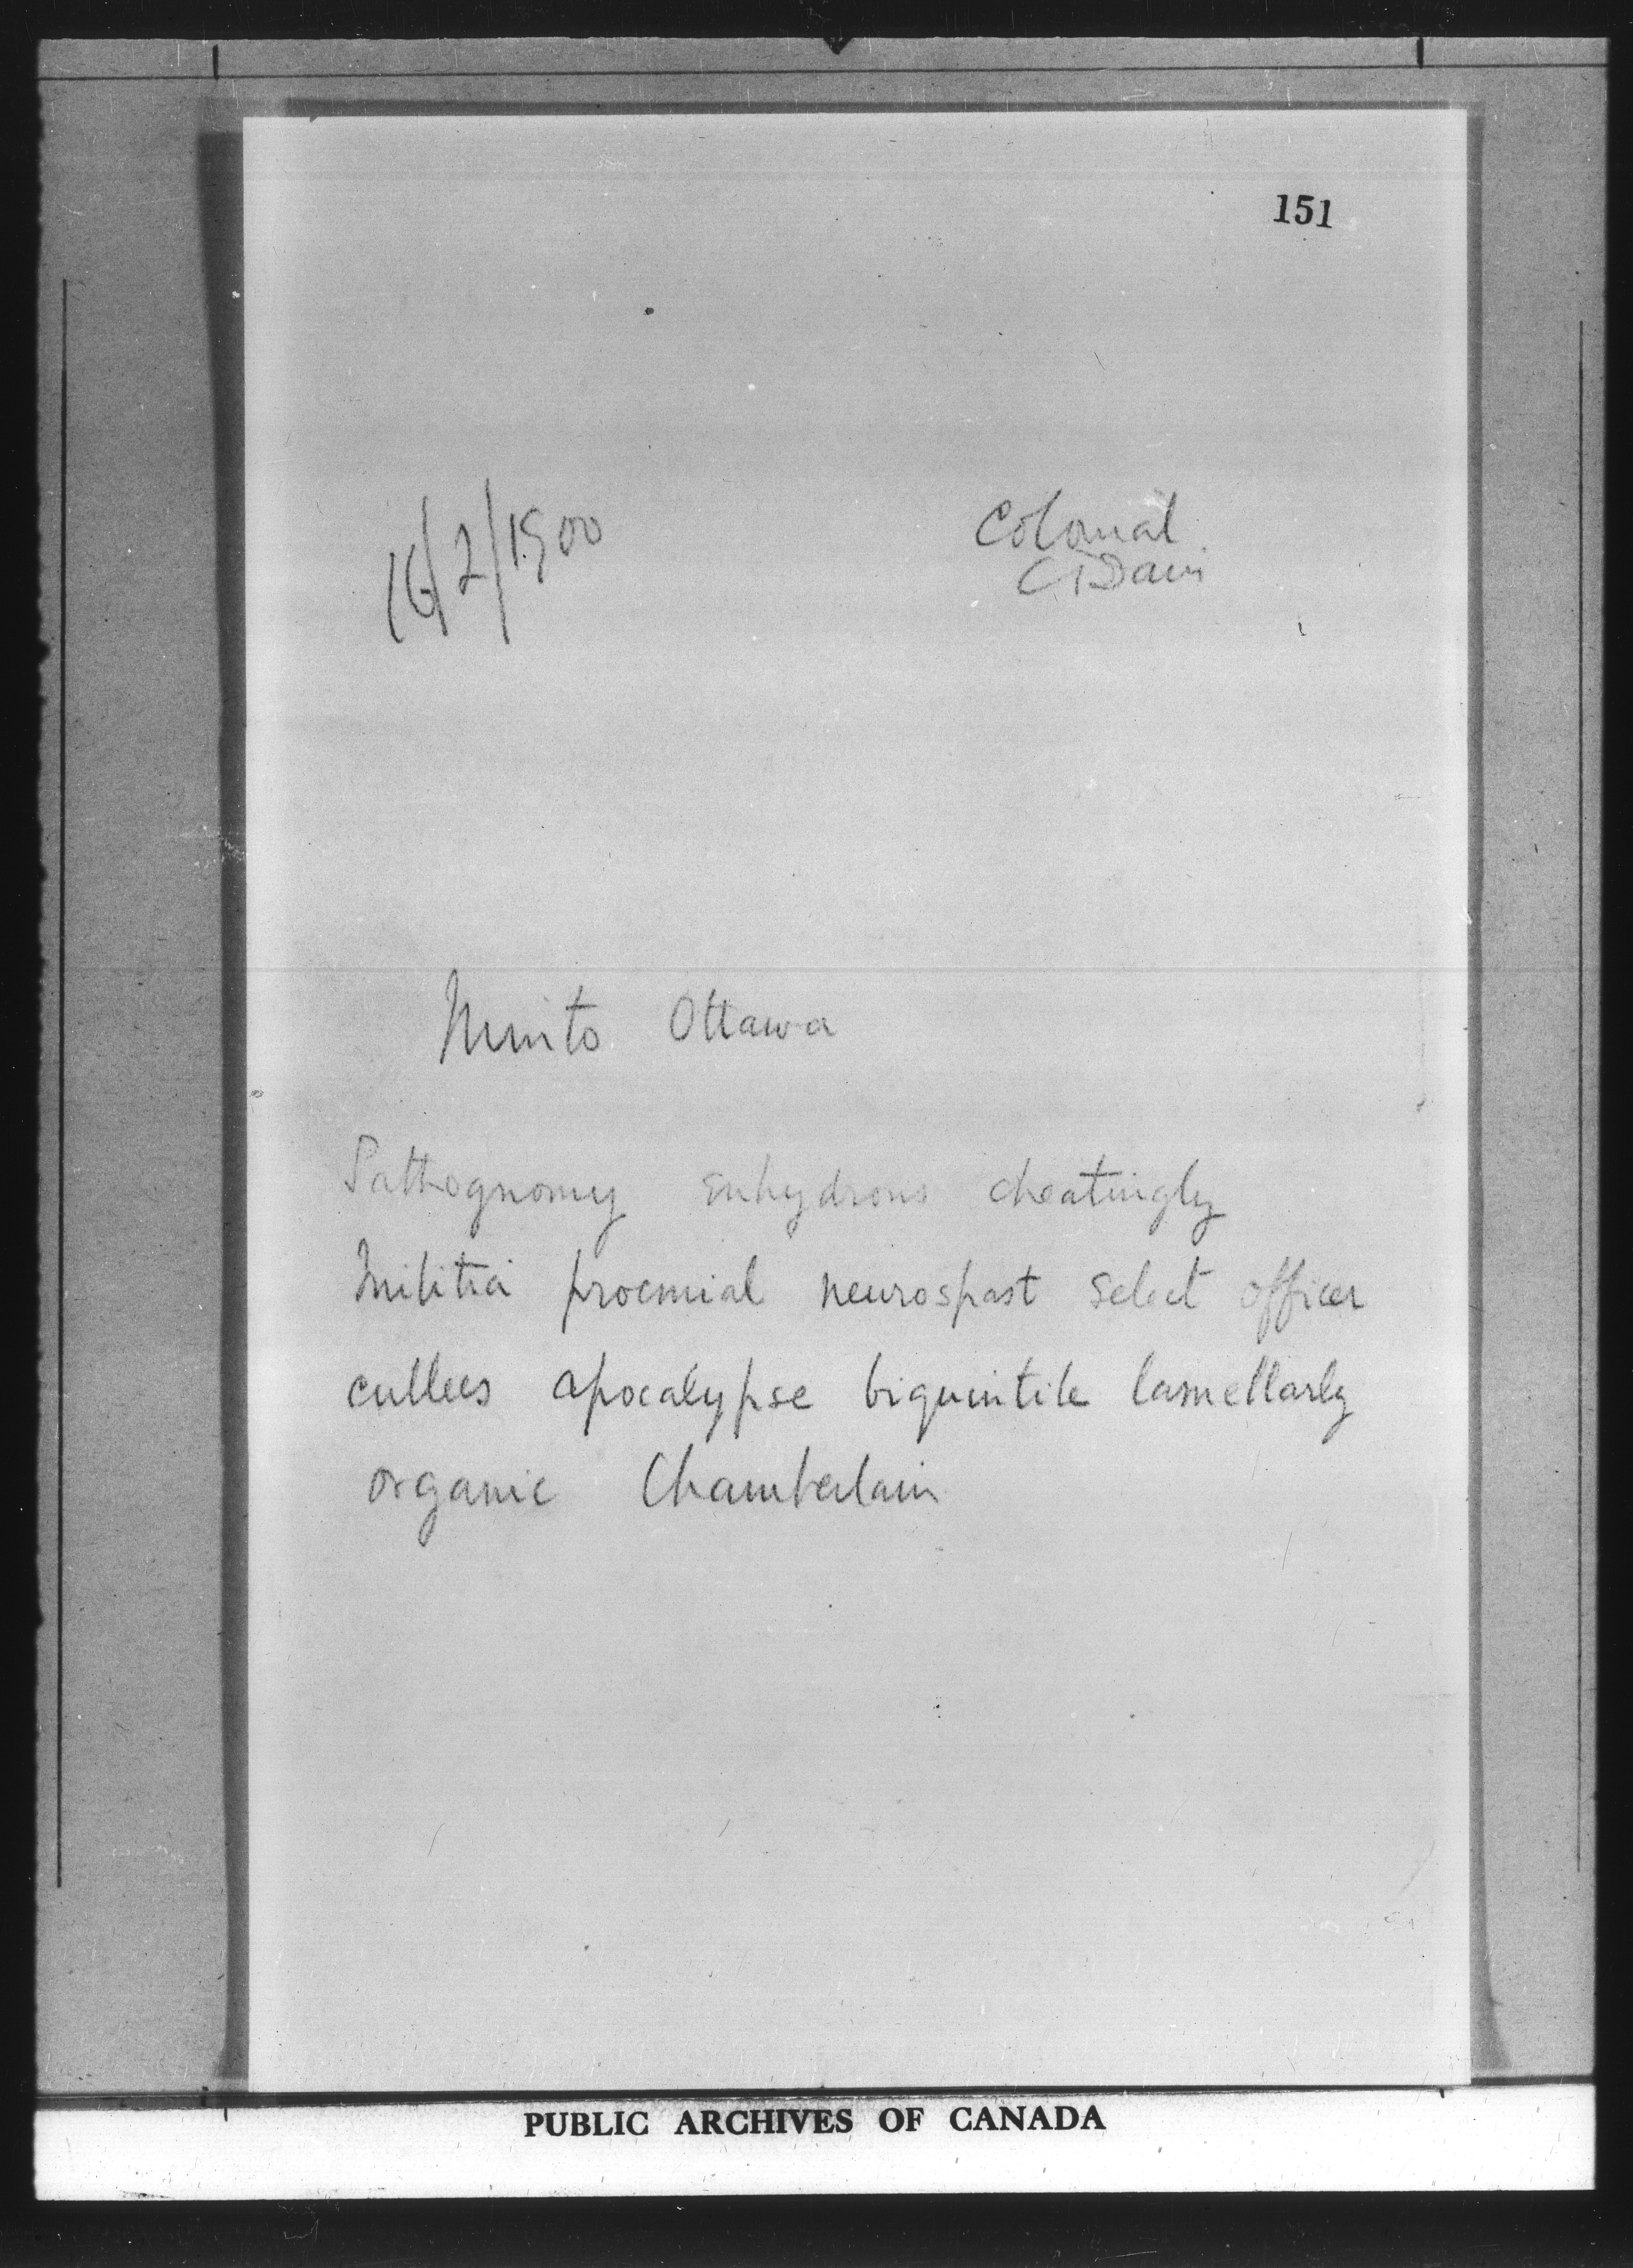 151
16/2/1900
Colonial
C Davis
Minto Ottawa
Pathognomy enhydrous cheatingly
Militia proemial neurospast select officer
cullees apocalypse biquintile lamellarly
organic Chamberlain
PUBLIC ARCHIVES OF CANADA